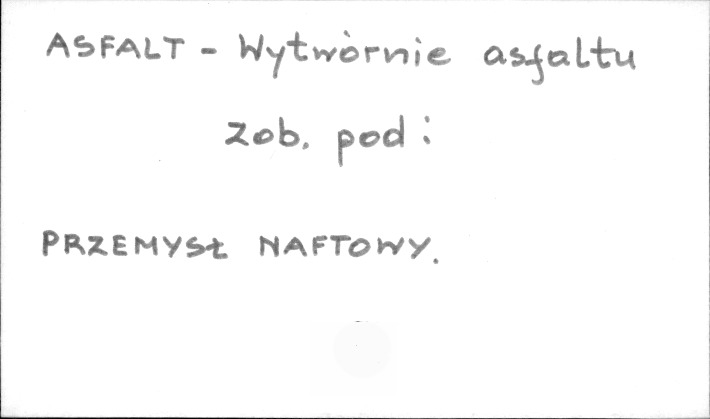 ASFALT - Wytwórnie asfaltu
zob. pod:
PRZEMYSŁ NAFTOWY.